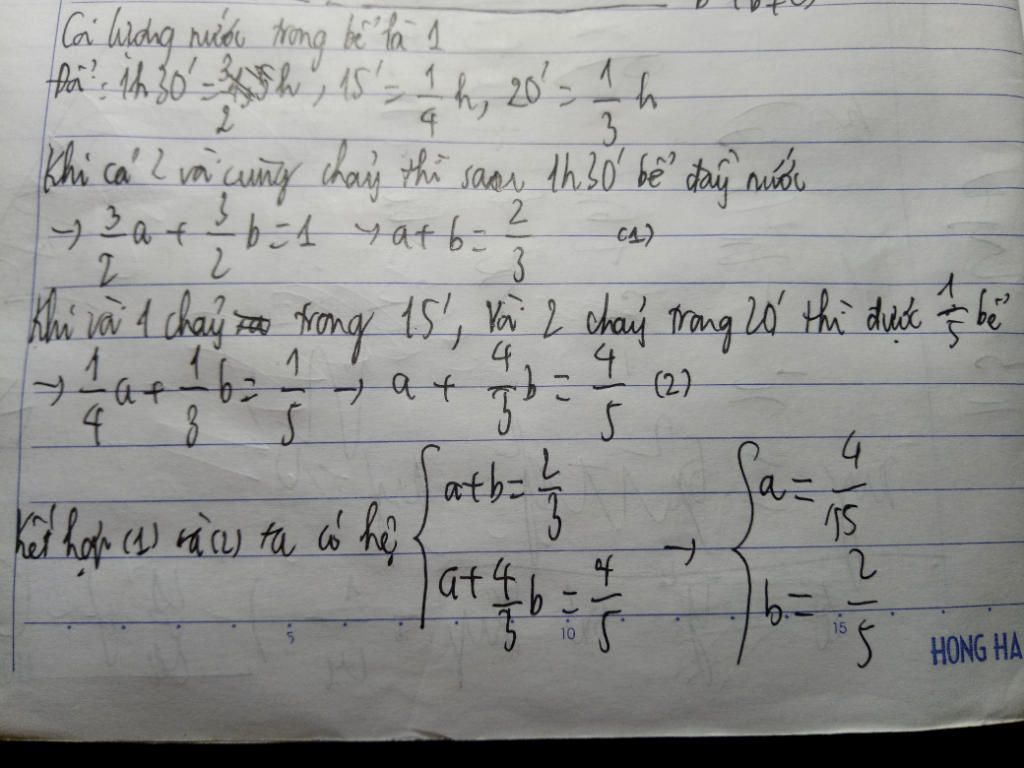 Coi lượng nước trong bể là 1
Đổi: 1h30' = 3/2 h, 15' = 1/4 h, 20' = 1/3 h
Khi cả 2 vòi cùng chảy thì sau 1h30' bể đầy nước
→ 3/2 a + 3/2 b = 1 → a + b = 2/3 (1)
Khi vòi 1 chảy trong 15', vòi 2 chảy trong 20' thì được 1/5 bể
→ 1/4 a + 1/3 b = 1/5 → a + 4/3 b = 4/5 (2)
Kết hợp (1) và (2) ta có hệ { a + b = 2/3 → { a = 4/15
a + 4/3 b = 4/5 b = 2/5
5 10 15
HONG HA